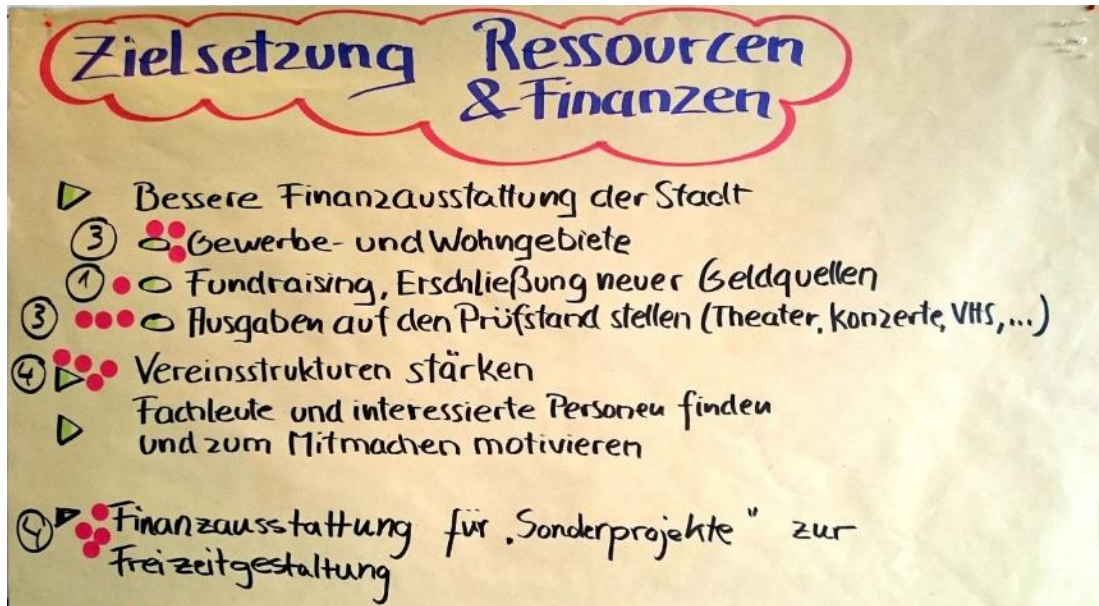 Zielsetzung Ressourcen
& Finanzen
Bessere Finanzausstattung der Stadt
3 Gewerbe- und Wohngebiete
1 Fundraising, Erschließung neuer Geldquellen
3 Ausgaben auf den Prüfstand stellen (Theater, Konzerte, VHS, ...)
4 Vereinsstrukturen stärken
Fachleute und interessierte Personen finden
und zum Mitmachen motivieren
4 Finanzausstattung für „Sonderprojekte" zur
Freizeitgestaltung